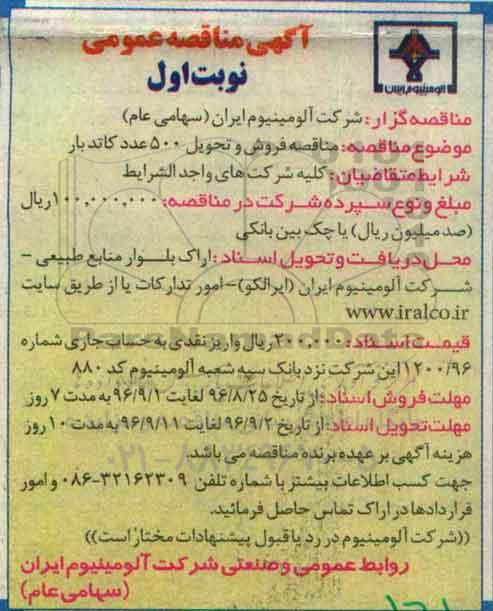 آگهی مناقصه عمومی
نوبت اول
آلومینیوم ایران
مناقصه گزار: شرکت آلومینیوم ایران (سهامی عام)
موضوع مناقصه: مناقصه فروش و تحویل ۵۰۰ عدد کاتد بار
شرایط متقاضیان: کلیه شرکت های واجد الشرایط
مبلغ و نوع سپرده شرکت در مناقصه: ۱۰۰,۰۰۰,۰۰۰ ریال
(صد میلیون ریال) یا چک بین بانکی
محل دریافت و تحویل اسناد: اراک بلوار منابع طبیعی -
شرکت آلومینیوم ایران (ایرالکو) - امور تدارکات یا از طریق سایت
www.iralco.ir
قیمت اسناد: ۲۰۰,۰۰۰ ریال واریز نقدی به حساب جاری شماره
۱۲۰۰/۹۶ این شرکت نزد بانک سپه شعبه آلومینیوم کد ۸۸۰
مهلت فروش اسناد: از تاریخ ۹۶/۸/۲۵ لغایت ۹۶/۹/۱ به مدت ۷ روز
مهلت تحویل اسناد: از تاریخ ۹۶/۹/۲ لغایت ۹۶/۹/۱۱ به مدت ۱۰ روز
هزینه آگهی بر عهده برنده مناقصه می باشد.
جهت کسب اطلاعات بیشتر با شماره تلفن ۳۲۱۶۲۳۰۹-۰۸۶ و امور
قراردادها در اراک تماس حاصل فرمائید.
((شرکت آلومینیوم در رد یا قبول پیشنهادات مختار است))
روابط عمومی و صنعتی شرکت آلومینیوم ایران
(سهامی عام)
ParsNamadData